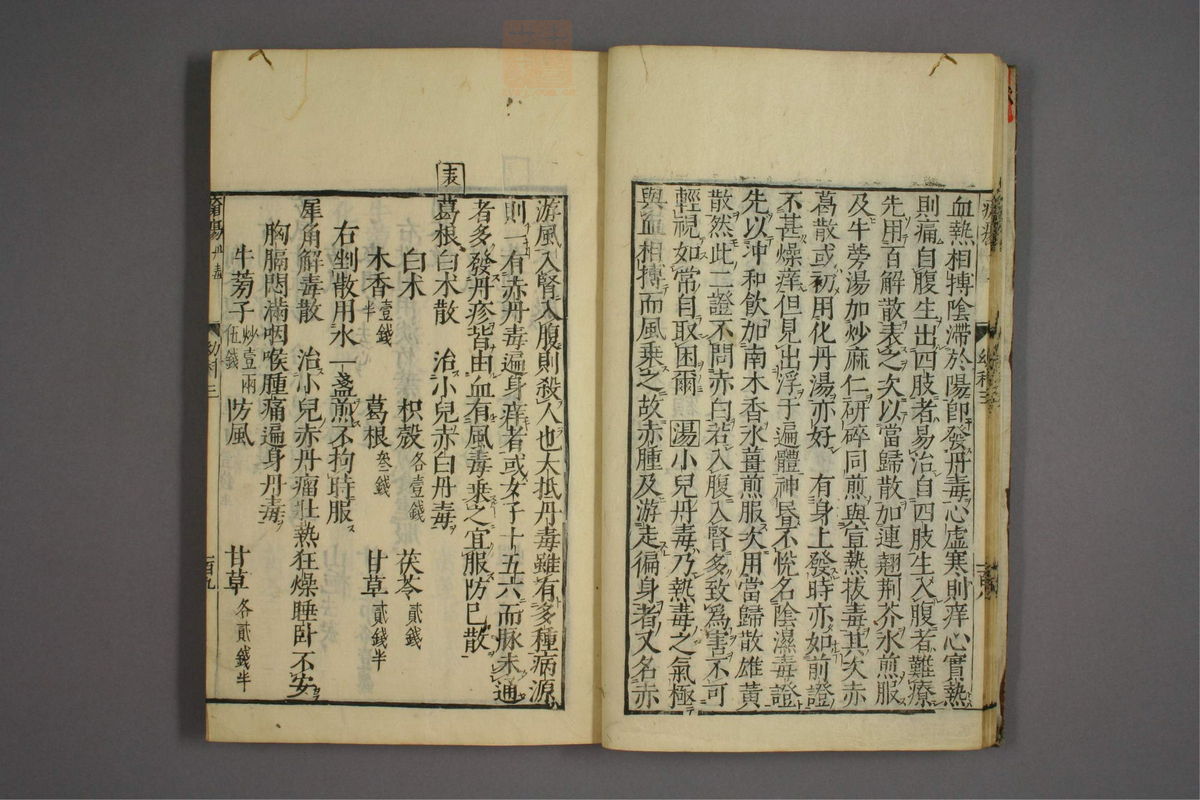 血熱相搏陰滯於陽即發丹毒心虛寒則痒心實熱
則痛自腹生出四肢者易治自四肢生入腹者難療
先用百解散表之次以當歸散加連翹荆芥水煎服
及牛蒡湯加炒麻仁研碎同煎與宣熱拔毒其次赤
葛散或初用化丹湯亦好 有身上發時亦如前證
不甚燥痒但見出浮于遍體神昏不悅名陰濕毒證
先以沖和飲加南木香水薑煎服次用當歸散雄黃
散然此二證不問赤白若入腹入腎多致為害不可
輕視如常自取困爾 湯小兒丹毒乃熱毒之氣極
與血相搏而風乗之故赤腫及游走徧身者又名赤
游風入腎入腹則殺人也大抵丹毒雖有多種病源
則一有赤丹毒遍身痒者或女子十五六而脉未通
者多發丹疹皆由血有風毒乗之宜服防已散
表 葛根白朮散 治小兒赤白丹毒
白朮 枳殼各壹錢 茯苓貳錢
木香壹錢半 葛根叁錢 甘草貳錢半
右剉散用水一盞煎不拘時服
犀角解毒散 治小兒赤丹瘤壯熱狂燥睡卧不安
胸膈悶滿咽喉腫痛遍身丹毒
牛蒡子炒壹兩伍錢 防風 甘草各貳錢半
丹毒 幼科三 一百九